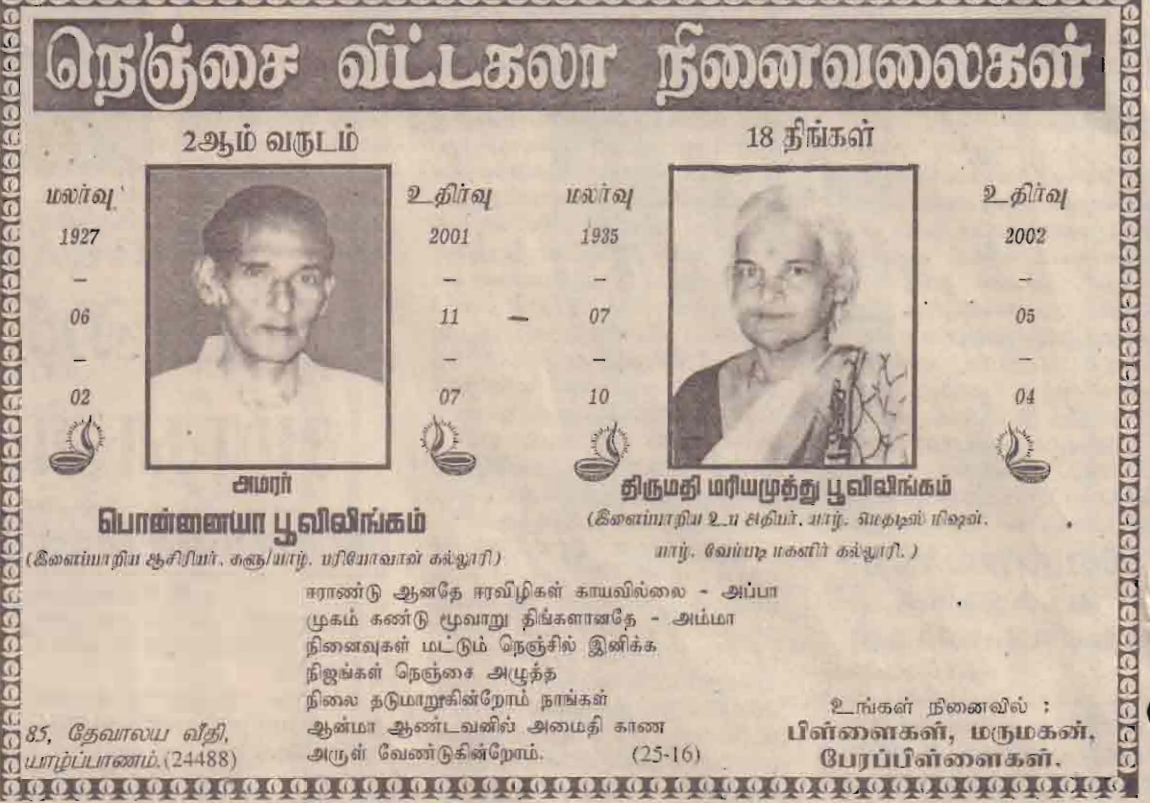 நெஞ்சை விட்டகலா நினைவலைகள்
2ஆம் வருடம்
மலர்வு
1927
–
06
–
02
உதிர்வு
2001
–
11
–
07
அமரர்
பொன்னையா பூவிலிங்கம்
(இளைப்பாறிய ஆசிரியர், களு/யாழ். பரியோவான் கல்லூரி)
18 திங்கள்
மலர்வு
1935
–
07
–
10
உதிர்வு
2002
–
05
–
04
திருமதி மரியமுத்து பூவிலிங்கம்
(இளைப்பாறிய உப அதிபர், யாழ். மெதடிஸ் மிஷன்,
யாழ். வேம்படி மகளிர் கல்லூரி.)
ஈராண்டு ஆனதே ஈரவிழிகள் காயவில்லை - அப்பா
முகம் கண்டு மூவாறு திங்களானதே - அம்மா
நினைவுகள் மட்டும் நெஞ்சில் இனிக்க
நிஜங்கள் நெஞ்சை அழுத்த
நிலை தடுமாறுகின்றோம் நாங்கள்
ஆன்மா ஆண்டவனில் அமைதி காண
அருள் வேண்டுகின்றோம். (25-16)
85, தேவாலய வீதி,
யாழ்ப்பாணம்.(24488)
உங்கள் நினைவில் :
பிள்ளைகள், மருமகன்,
பேரப்பிள்ளைகள்.